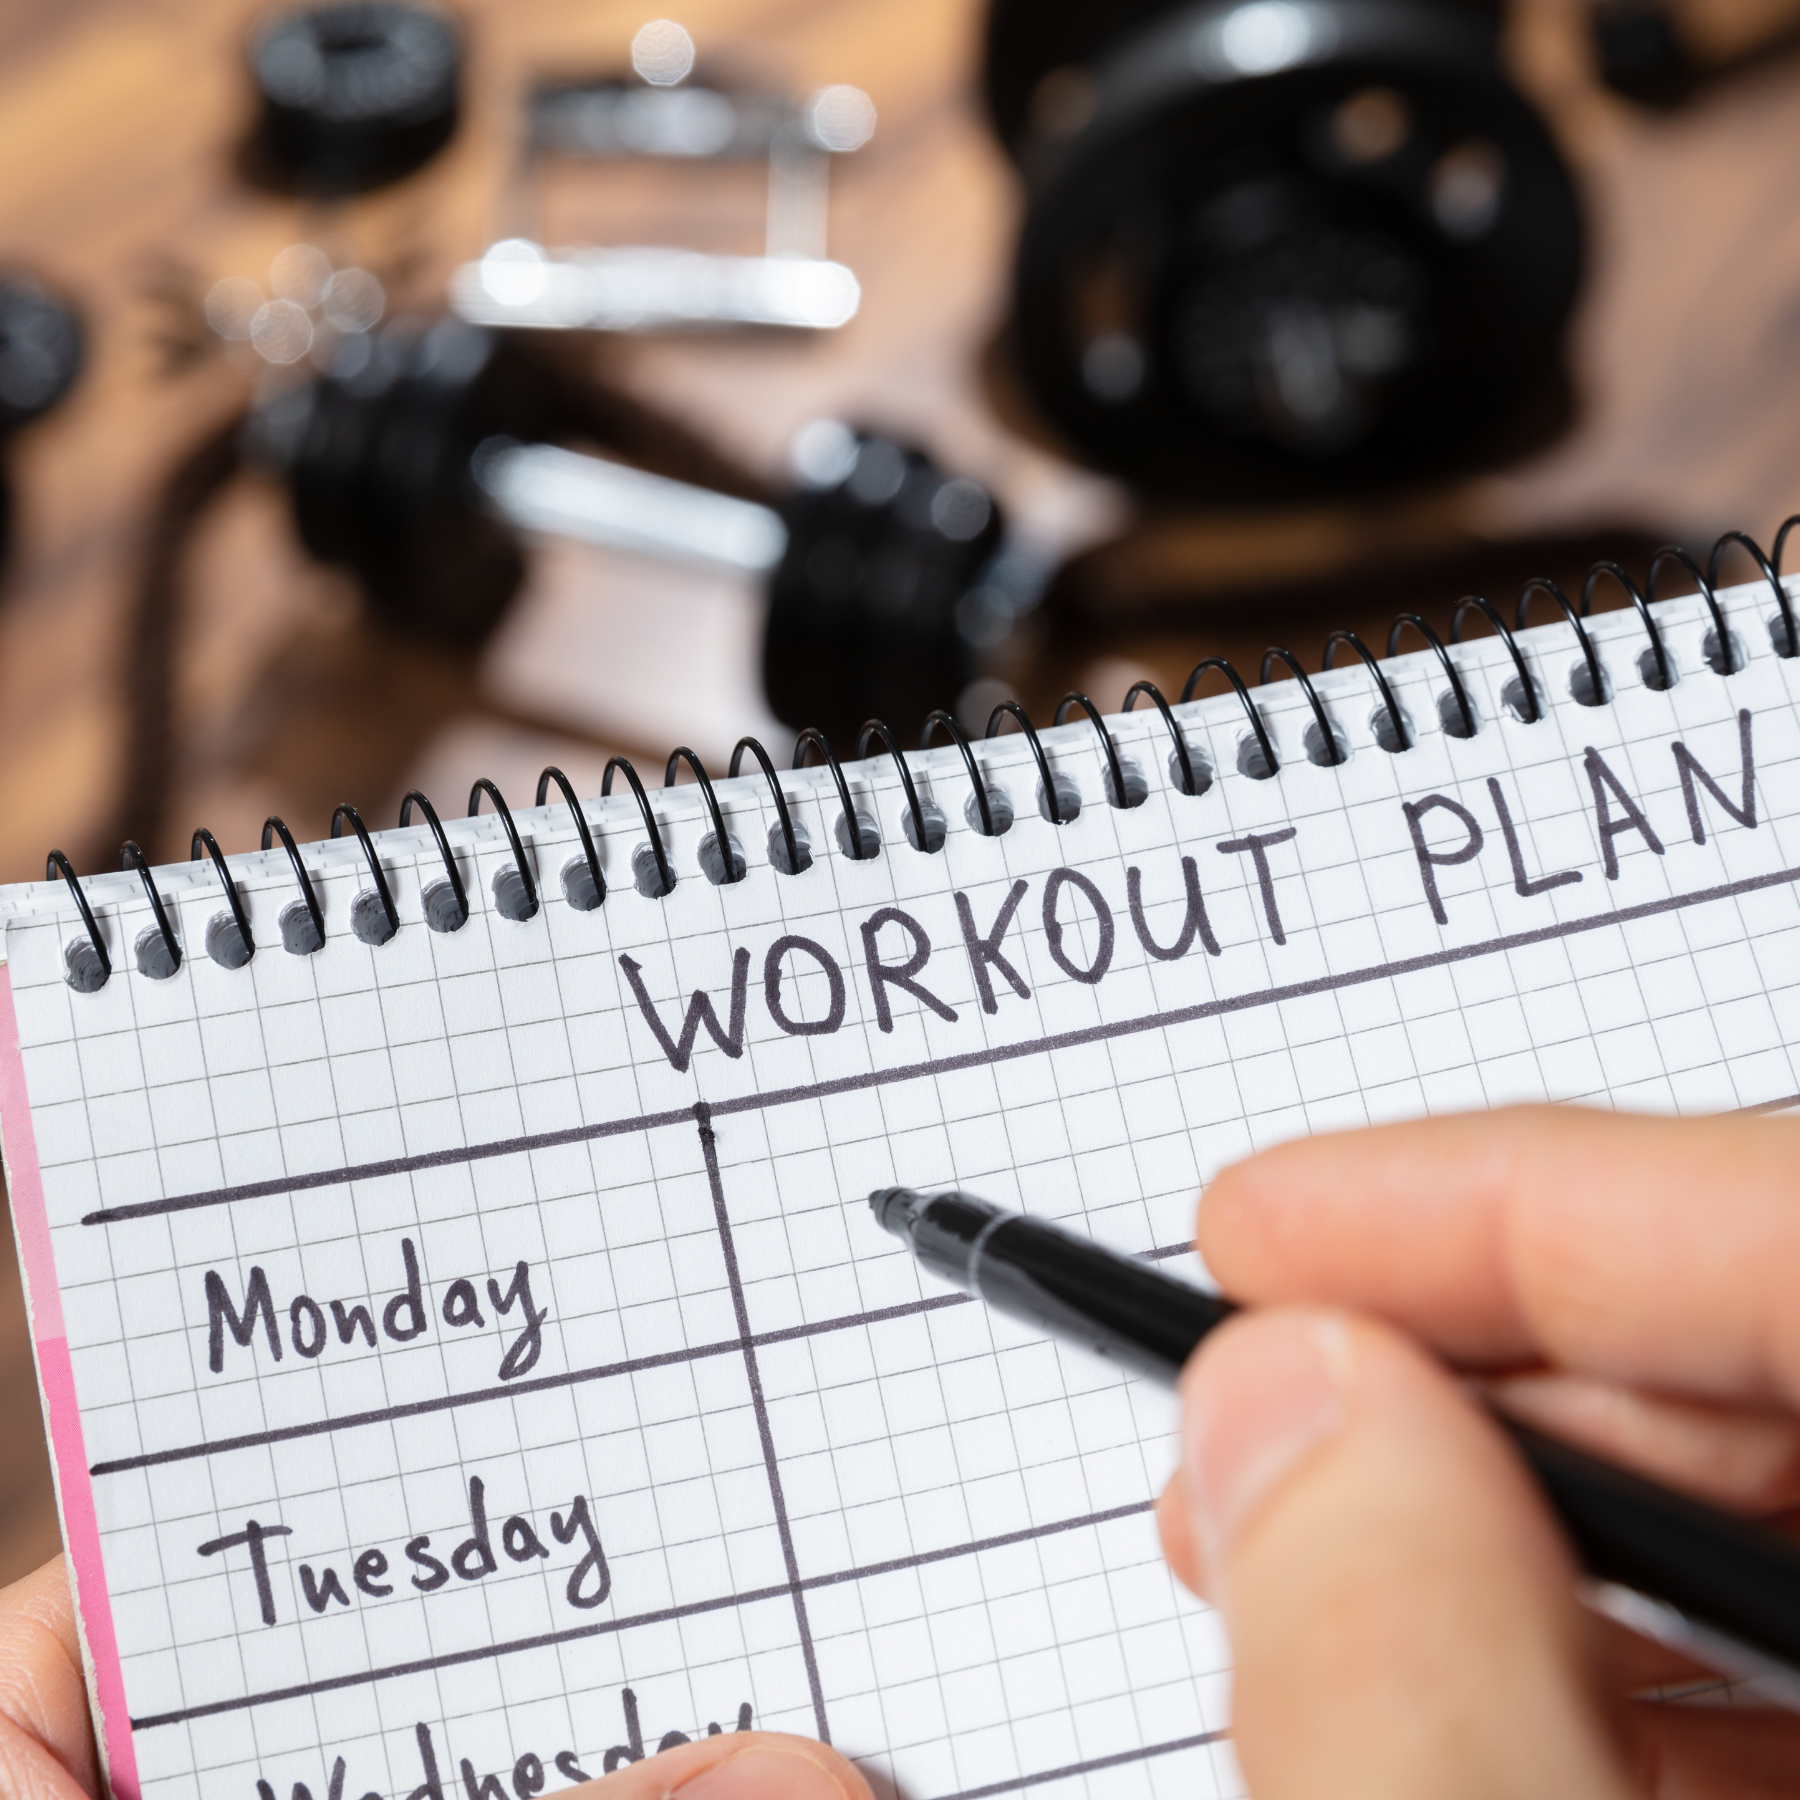 WORKOUT PLAN
Monday
Tuesday
Wednesday